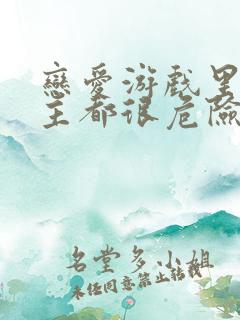 戀愛游戲里
主都很危險
名堂多小姐
未经同意禁止转载